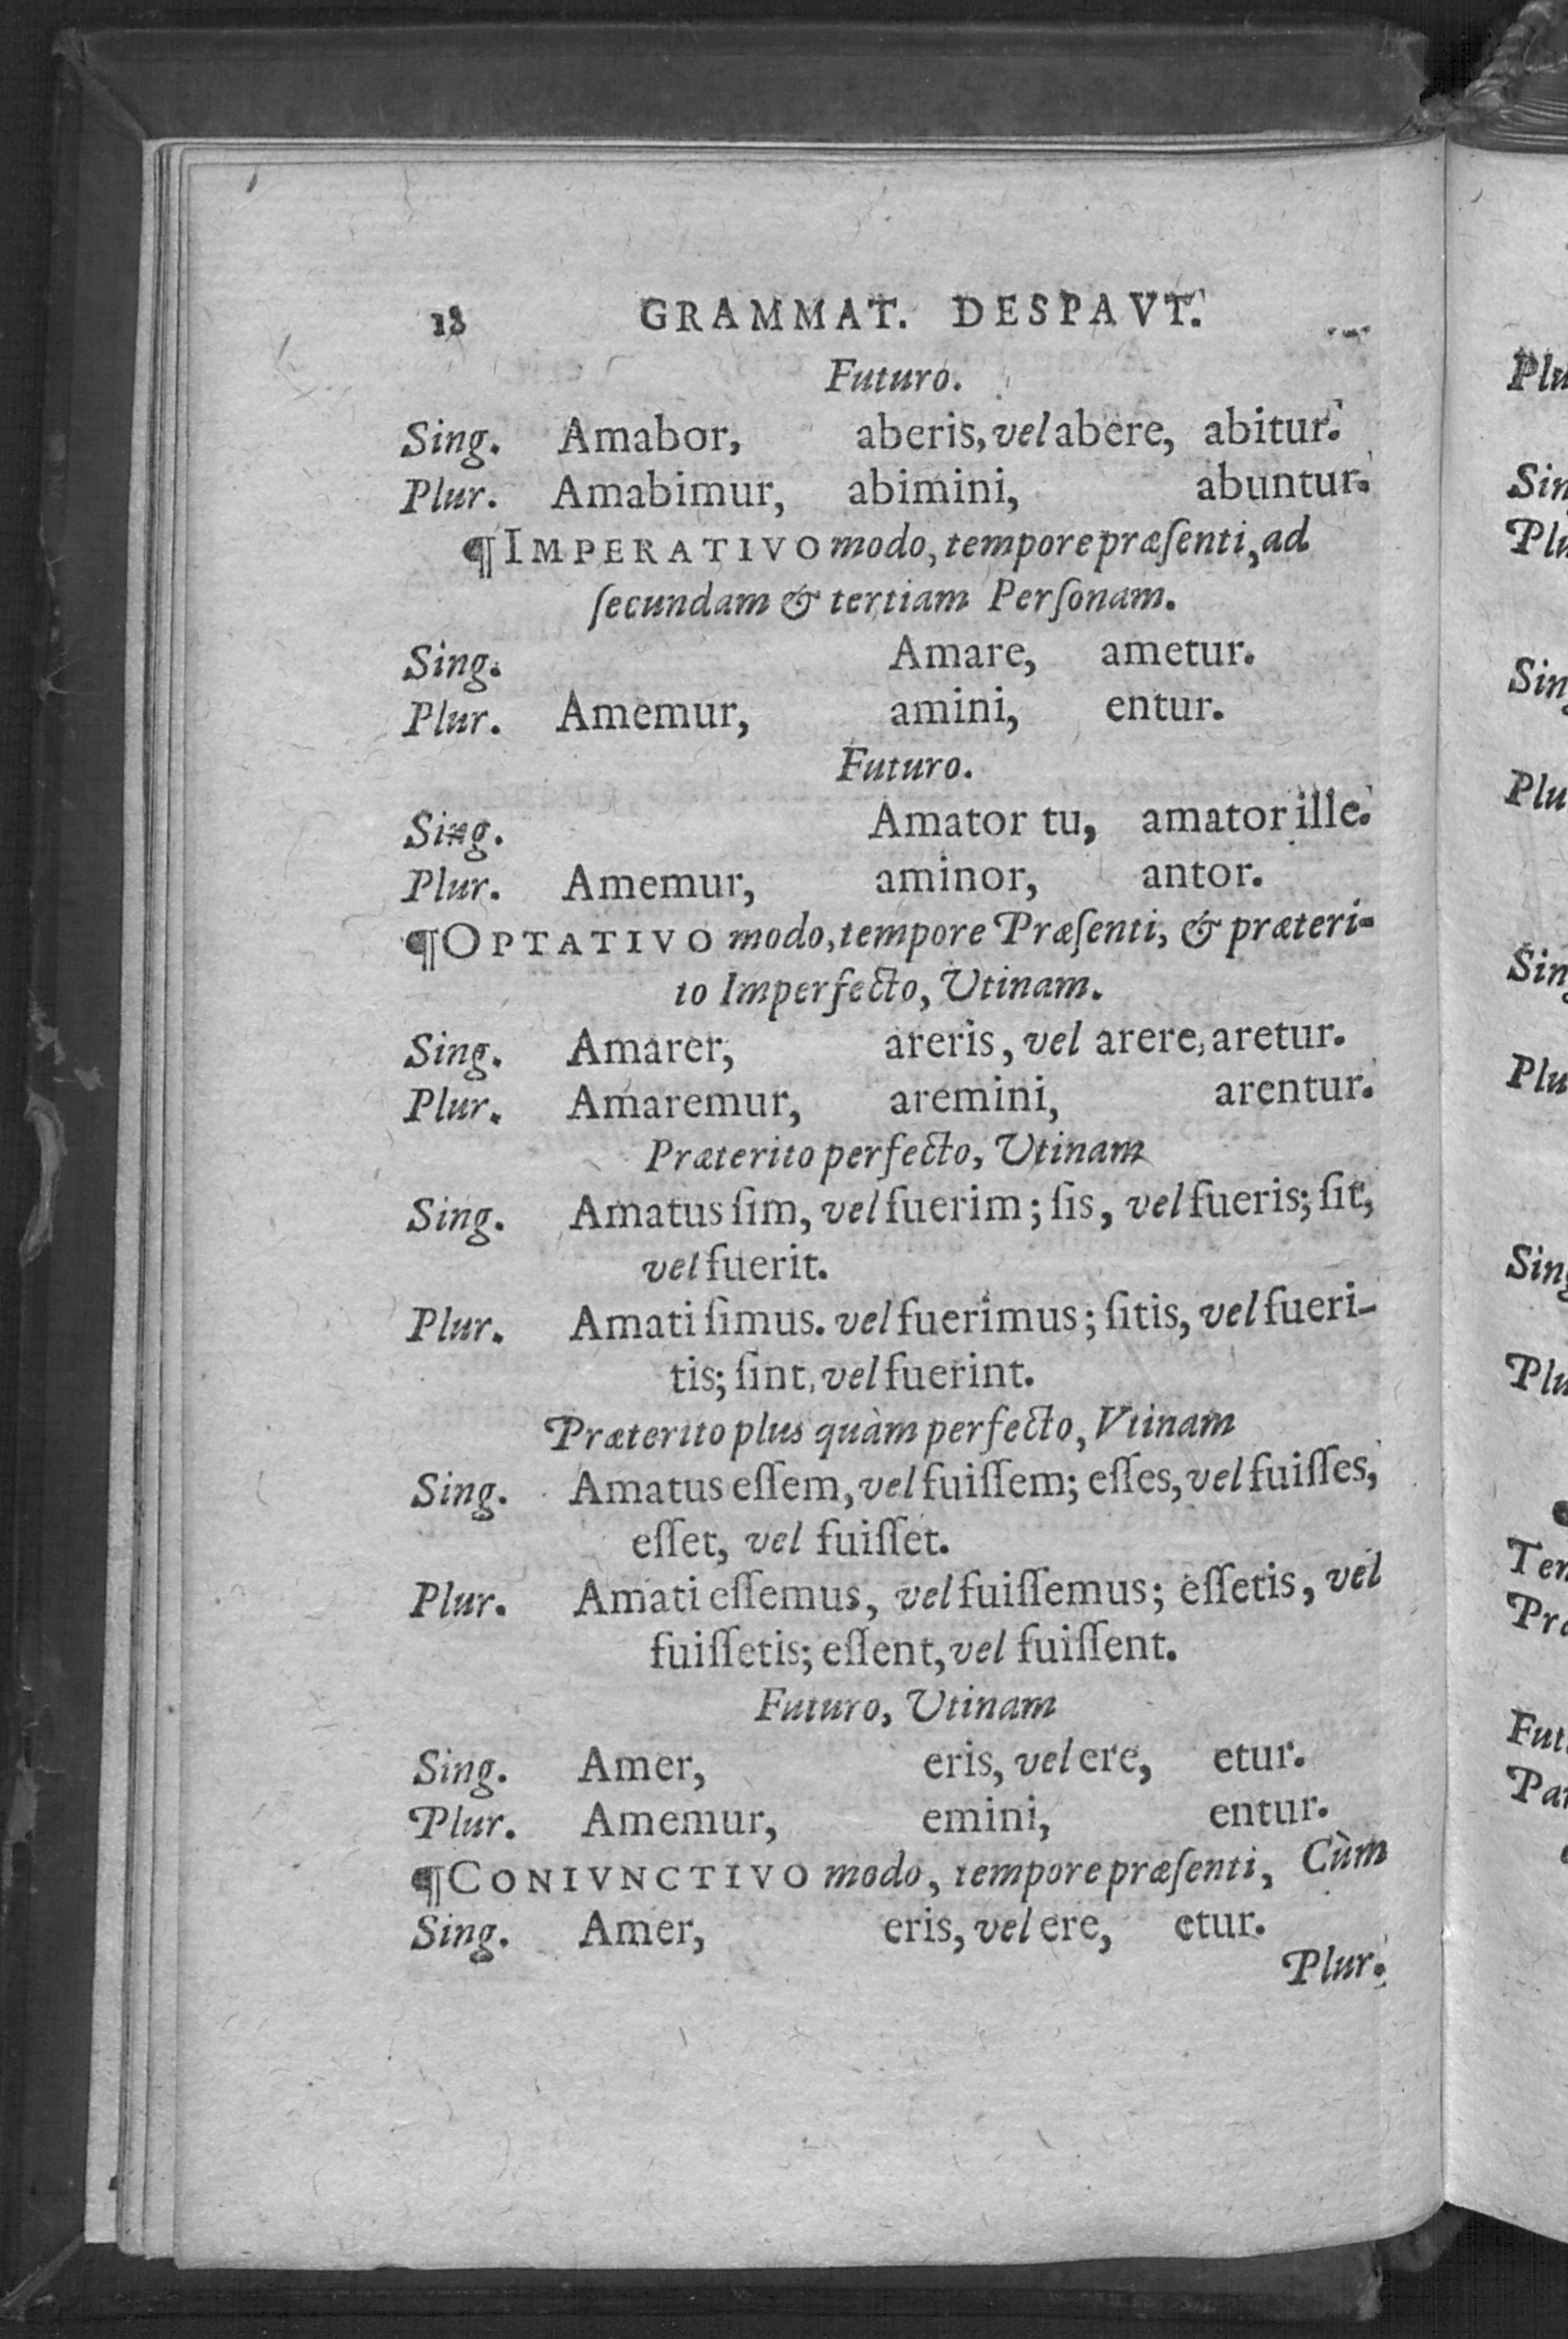 18 GRAMMAT. DESPAVT.
Futuro.
Sing. Amabor, aberis, vel abere, abitur.
Plur. Amabimur, abimini, abuntur.
¶IMPERATIVO modo, tempore præſenti, ad
ſecundam & tertiam Perſonam.
Sing. Amare, ametur.
Plur. Amemur, amini, entur.
Futuro.
Sing. Amator tu, amator ille.
Plur. Amemur, aminor, antor.
¶OPTATIVO modo, tempore Præſenti, & præteri-
to Imperfecto, Utinam.
Sing. Amarer, areris, vel arere, aretur.
Plur. Amaremur, aremini, arentur.
Præterito perfecto, Utinam
Sing. Amatus ſim, vel fuerim; ſis, vel fueris; ſit,
vel fuerit.
Plur. Amati ſimus. vel fuerimus; ſitis, vel fueri-
tis; ſint, vel fuerint.
Præterito plus quàm perfecto, Vtinam
Sing. Amatus eſſem, vel fuiſſem; eſſes, vel fuiſſes,
eſſet, vel fuiſſet.
Plur. Amati eſſemus, vel fuiſſemus; eſſetis, vel
fuiſſetis; eſſent, vel fuiſſent.
Futuro, Utinam
Sing. Amer, eris, vel ere, etur.
Plur. Amemur, emini, entur.
¶CONIVNCTIVO modo, tempore præſenti, Cùm
Sing. Amer, eris, vel ere, etur.
Plur.
Plu
Sin
Plu
Sing
Plu
Sing
Plu
Sing
Plu
Ten
Præ
Fut
Par